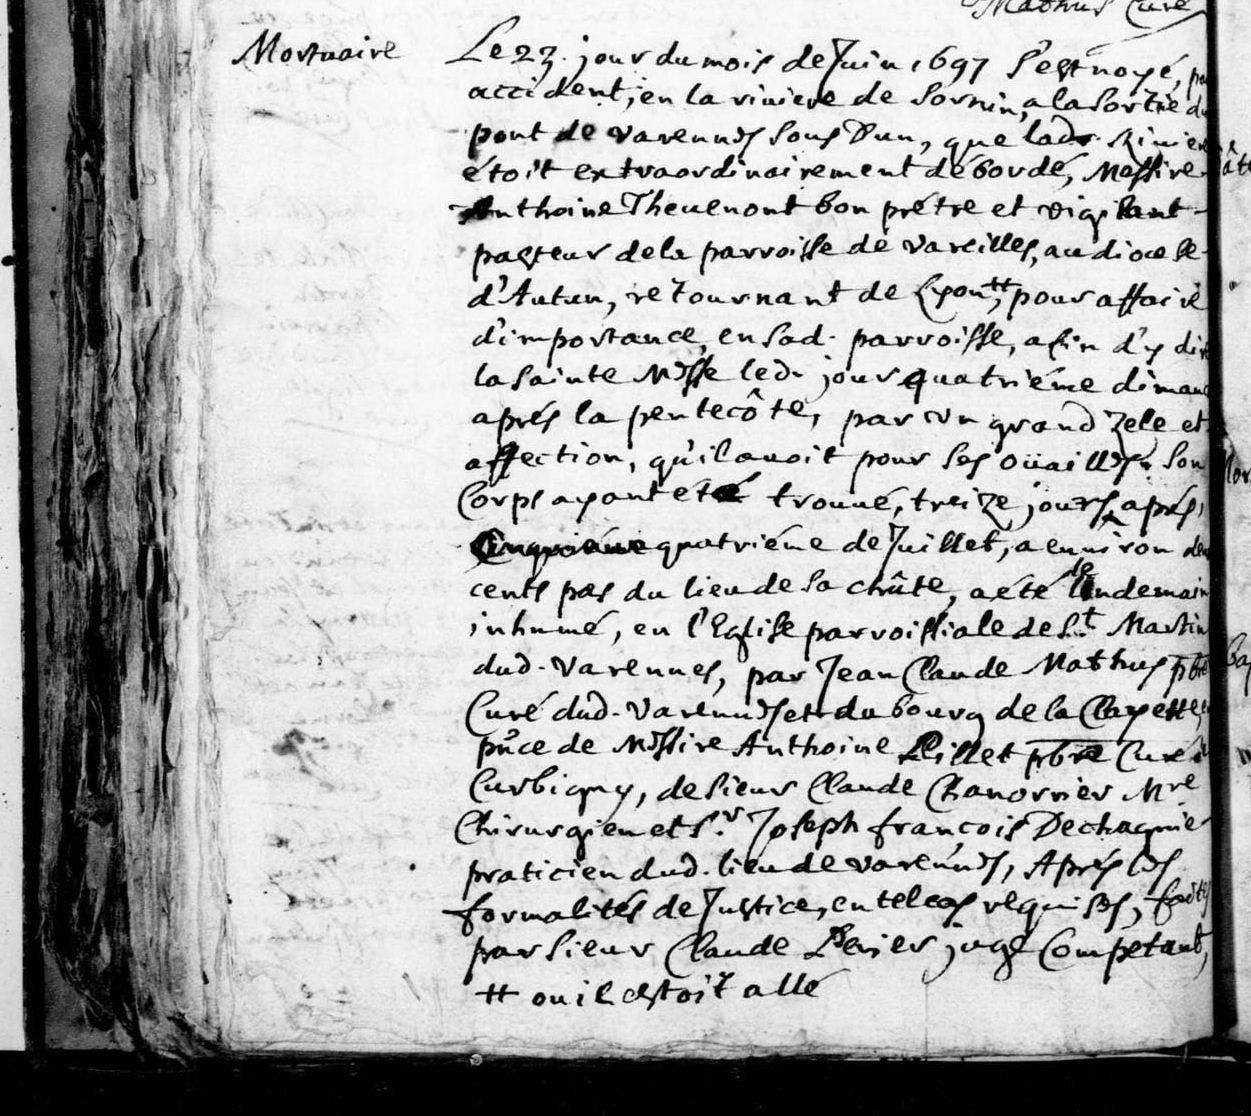 Mathus Curé
Mortuaire
Le 23. jour du mois de Juin 1697 s'est noyé, par
accident, en la riviere de Sornin, a la sortie du
pont de varennes sous Dun, que lad. Riviere
étoit extraordinairement débordé, Messire
Anthoine Theuenont bon prétre et vigilant
pasteur de la parroisse de vareilles, au diocese
d'Autun, retournant de Lyon ⧺, pour affaire
d'importance, en sad. parroisse, afin d'y dire
la sainte Messe led. jour quatriéme dimanc
aprés la pentecôte, par vn grand zele et
affection, qu'il auoit pour ses oüailles. Son
Corps ayant été trouué, treize jours aprés,
quatriéme de Juillet, a enuiron deu
cents pas du lieu de sa chûte, a été le lendemain
inhumé, en l'Eglise parroissiale de S.t Martin
dud. Varennes, par Jean Claude Mathus pbre
Curé dud. Varennes et du bourg de la Clayette,
pñce de Messire Anthoine Lillet pbre Curé
Curbigny, de sieur Claude Chanorrier Mre
Chirurgien et S.r Joseph francois Dechagnie
praticien dud. lieu de varennes, Aprés les
formalités de Justice, en tel cas requises, faites
par sieur Claude Perier juge Competant,
⧺ ou il estoit allé